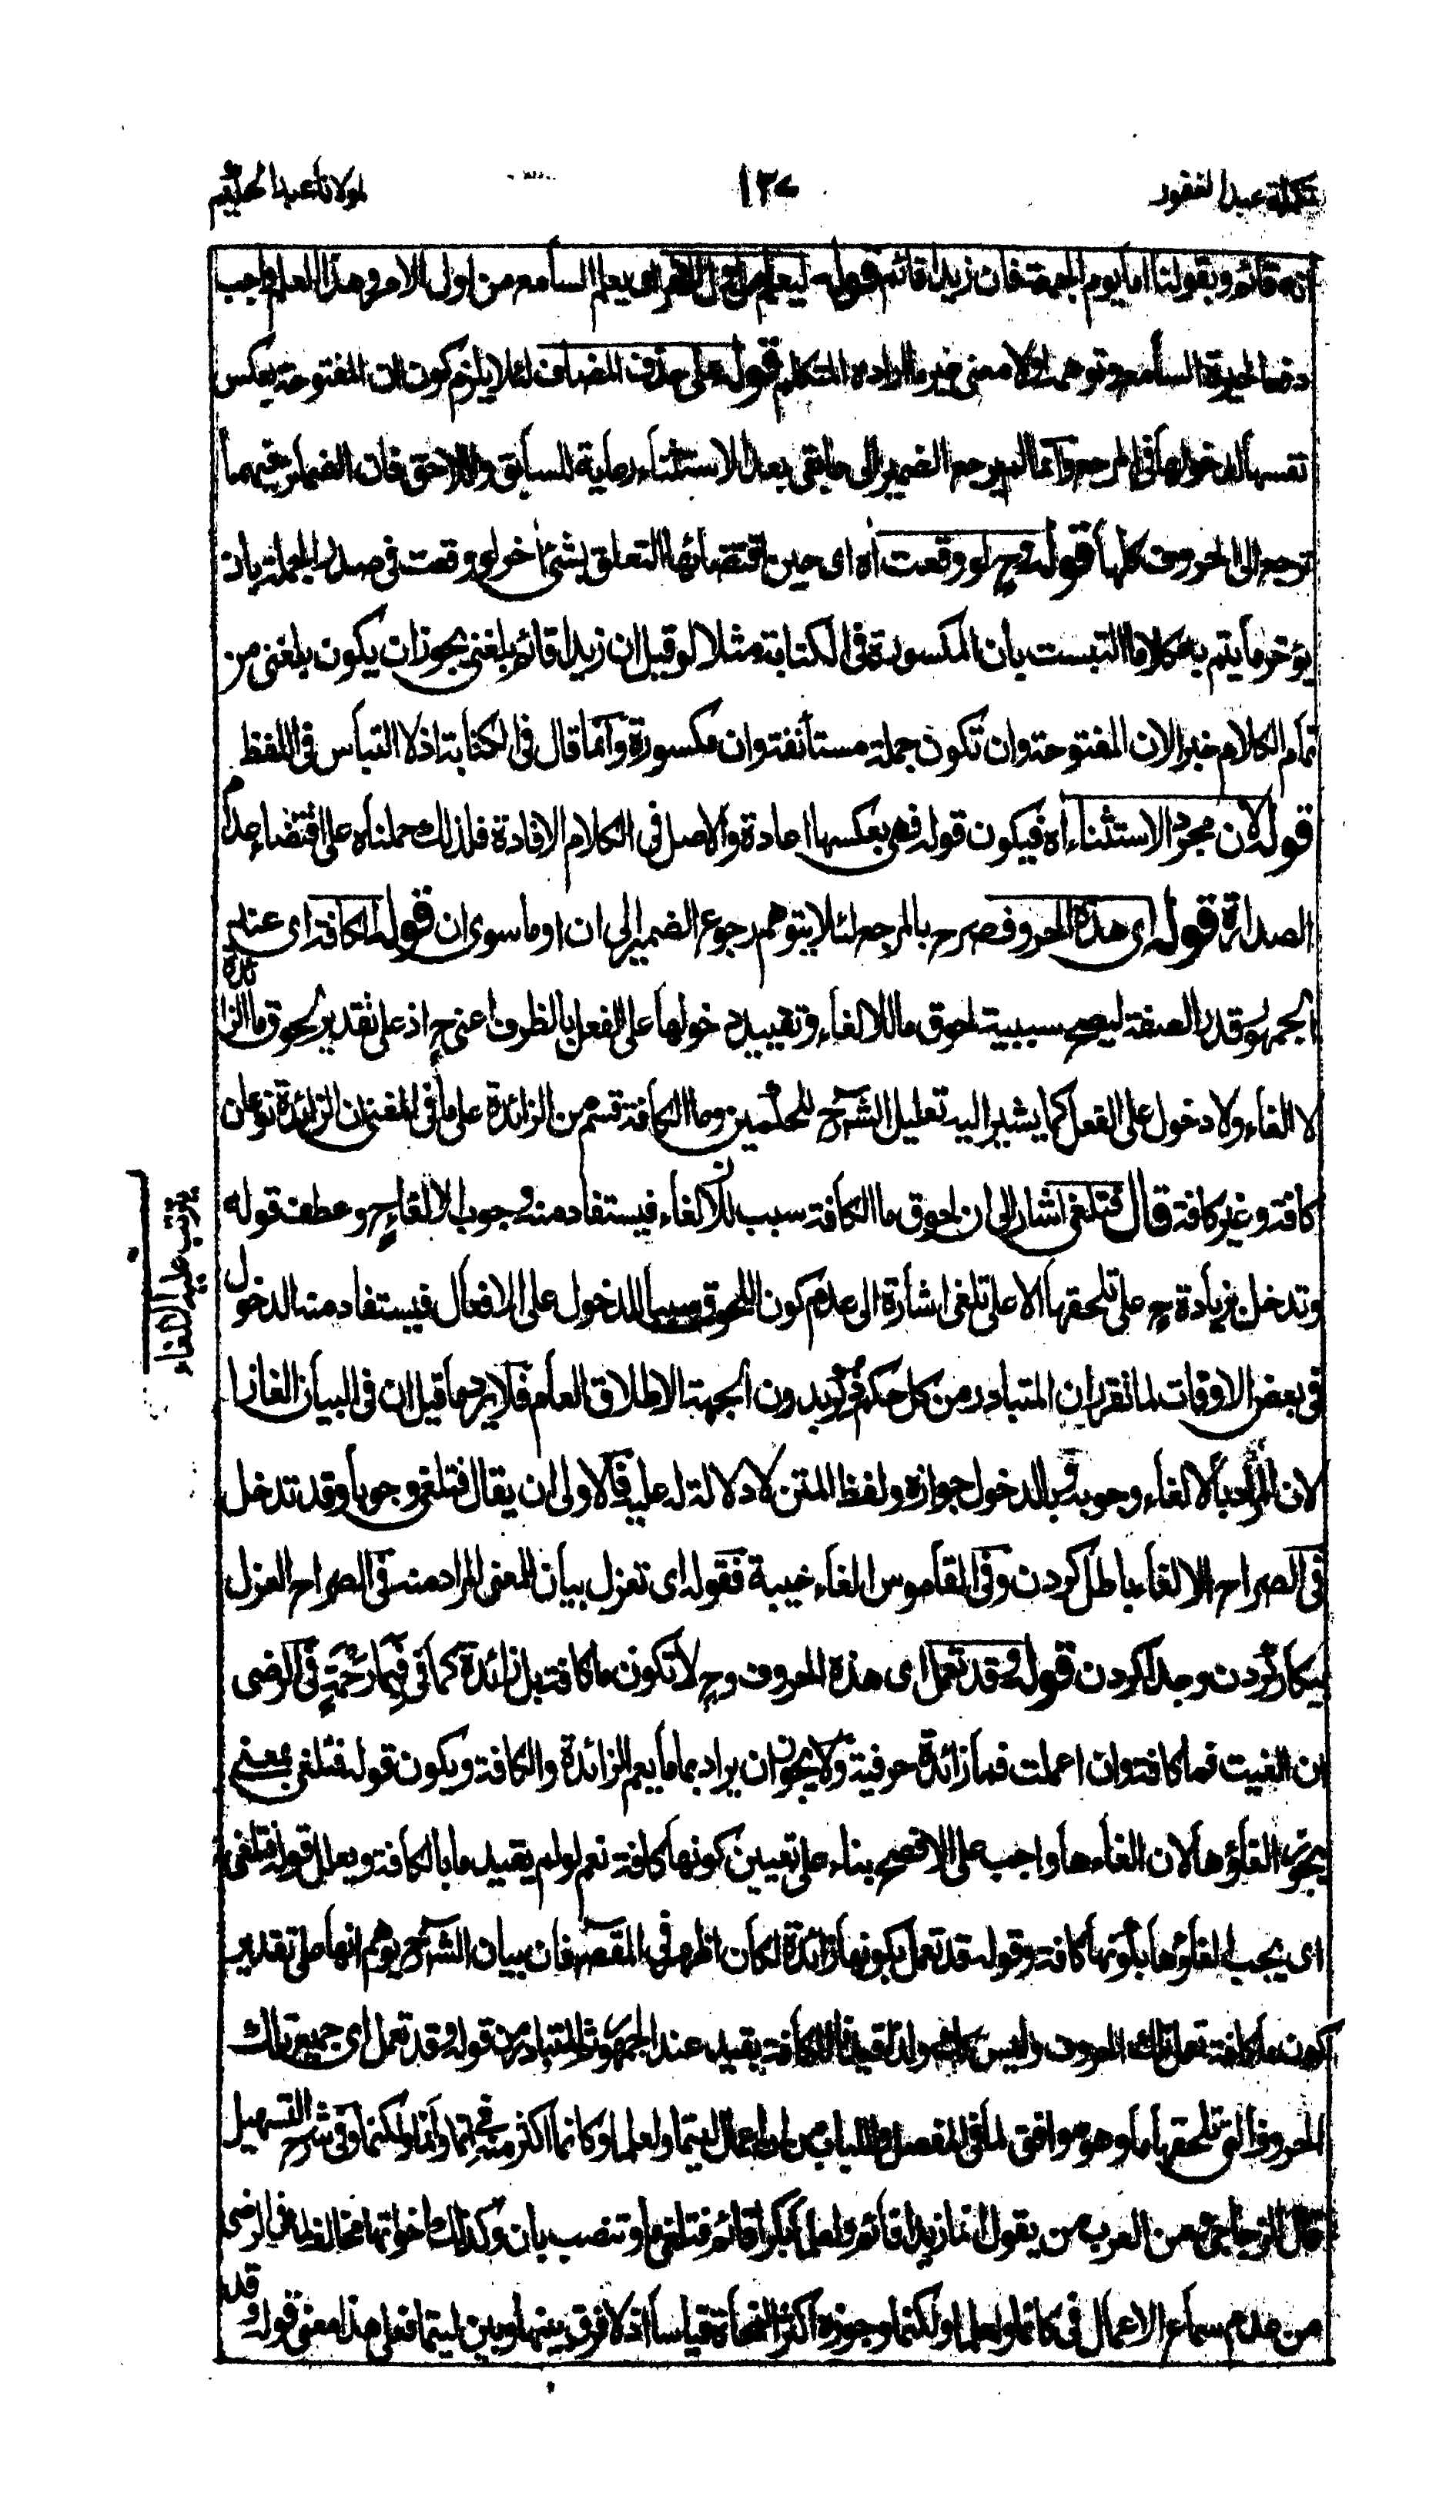 تكملة عبد الغفور
١٣٧
مولانا عبد الحكيم
انه قائم وبقولنا اما يوم الجمعة فان زيدا قائم قوله ليعلم من اول الامر اى يعلم السامع من اول الامر وهذا العلم واجب
دفعا لحيرة السامع وتوهمه كلاما معنى غير ما اراده المتكلم قوله على حذف المضاف لئلا يلزم كون ان المفتوحة بعكس
نفسها لدخولها فى المرجع وانما لم يرجع الضمير الى ما بقى بعد الاستثناء رعاية للسابق واللاحق فان الضمائر فيهما
ترجع الى الحروف كلها قوله وح لو وقعت اه اى حين اقتضائها التعلق بشئ أخر لو وقعت فى صدر الجملة بان
يؤخر ما يتم به كلاما التبست بان المكسورة فى الكتابة مثلا لو قيل ان زيدا قائم بلغنى يجوز ان يكون بلغنى من
تمام الكلام خبرا لان المفتوحة وان تكون جملة مستأنفة وان مكسورة وانما قال فى الكتابة اذ لا التباس فى اللفظ
قوله لان مجرد الاستثناء اه فيكون قوله فهى بعكسها اعادة والاصل فى الكلام الافادة فلذلك حملناه على اقتضاء عدم
الصدارة قوله اى هذه الحروف صرح بالمرجع لئلا يتوهم رجوع الضمير الى ان او ما سوى ان قوله الكافة اى عند
الجمهور قدر الصفة ليصح سببية لحوق ما للالغاء وتقييد دخولها على الفعل بالظرف اعنى ح اذ على تقدير لحوق ما الزائدة
لا الغاء ولا دخول على الفعل كما يشير اليه تعليل الشرح للحكمين وما الكافة قسم من الزائدة على ما فى المغنى ان الزائدة نوعان
كافة وغير كافة قال فتلغى اشار الى ان لحوق ما الكافة سبب للالغاء فيستفاد منه وجوب الالغاء ح وعطف قوله
يترتب عليه الالغاء
وتدخل بزيادة ح على تلحقها لا على تلغى اشارة الى عدم كون اللحوق سببا للدخول على الافعال فيستفاد منه الدخول
فى بعض الاوقات لما تقرر ان المتبادر من كل حكم ورد بدون الجهة الاطلاق العام فلا يرد ما قيل ان فى البيان الغازا
لان المراد بالالغاء وجوبه وبالدخول جوازه ولفظ المتن لا دلالة له عليه فالاولى ان يقال فتلغى وجوبا وقد تدخل
فى الصراح الالغاء باطل كردن وفى القاموس الغاء خيبة فقوله اى تعزل بيان المعنى المراد منه فى الصراح العزل
بيكار كردن وجدا كردن قوله وقد تعمل اى هذه الحروف وح لا تكون ما كافة بل زائدة كما فى فبما رحمة فى الرضى
ان الغيت فما كافة وان اعملت فما زائدة حرفية ولا يجوز ان يراد بما ما يعم الزائدة والكافة ويكون قوله فتلغى بمعنى
يجوز الغاؤها لان الغاءها واجب على الافصح بناء على تعيين كونها كافة نعم لو لم يقيد ما بالكافة ويعلل قوله فتلغى
اى يجب الغاؤها بكونها كافة وقوله قد تعمل بكونها زائدة لكان اظهر فى المقصود فان بيان الشرح يوهم انها على تقدير
كون ما كافة تعمل تلك الحروف وليس كذلك ولذا قيد الكافة بقيد عند الجمهور ثم المتبادر من قوله وقد تعمل اى جميع تلك
الحروف التى تلحقها ما وهو موافق لما فى المفصل واللباب من ان اعمال ليتما ولعلما وكانما اكثر منه فى انما وانما ولكنما وفى شرح التسهيل
قال الزجاجى من العرب من يقول انما زيدا قائم ولعلما بكرا قائم فتلغى ما وتنصب بان وكذلك اخواتها مخالف لما فى الرضى
من عدم سماع الاعمال فى كانما ولعلما ولكنما وجوزه اكثر النحاة قياسا اذ لا فرق بينها وبين ليتما فعلى هذا معنى قوله وقد